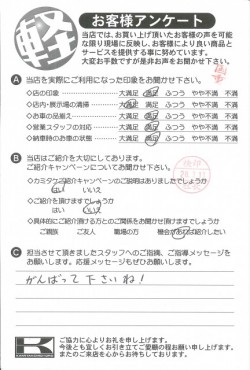 軽
お客様アンケート
当店では、お買い上げ頂いたお客様の声を可能
な限り現場に反映し、お客様により良い商品と
サービスを提供する事に努めています。
大変お手数ですが是非お声をお聞かせ下さい。
A 当店を実際にご利用になった印象をお聞かせ下さい。
◇店の印象 大満足 満足 ふつう やや不満 不満
◇店内・展示場の清掃 大満足 満足 ふつう やや不満 不満
◇お車の品揃え 大満足 満足 ふつう やや不満 不満
◇営業スタッフの対応 大満足 満足 ふつう やや不満 不満
◇納車時のお車の状態 大満足 満足 ふつう やや不満 不満
B 当店はご紹介を大切にしてあります。
ご紹介キャンペーンについてお聞かせ下さい。
◇カミタウご紹介キャンペーンのご説明はありましたでしょうか
はい いいえ
◇ご紹介を頂けますでしょうか
はい いいえ
◇具体的にご紹介頂ける方とのご関係をお聞かせ頂けますでしょうか
ご親族 ご友人 職場の方 機会があれば紹介したい
C 担当させて頂きましたスタッフへのご指摘、ご指導メッセージを
お願いします。応援メッセージもぜひお願いします。
がんばって下さいね！
ご協力に心よりお礼を申し上げます。
今後とも宜しくお引き立てご愛顧の程お願い申し上げます。
またのご来店を心からお待ちしております。